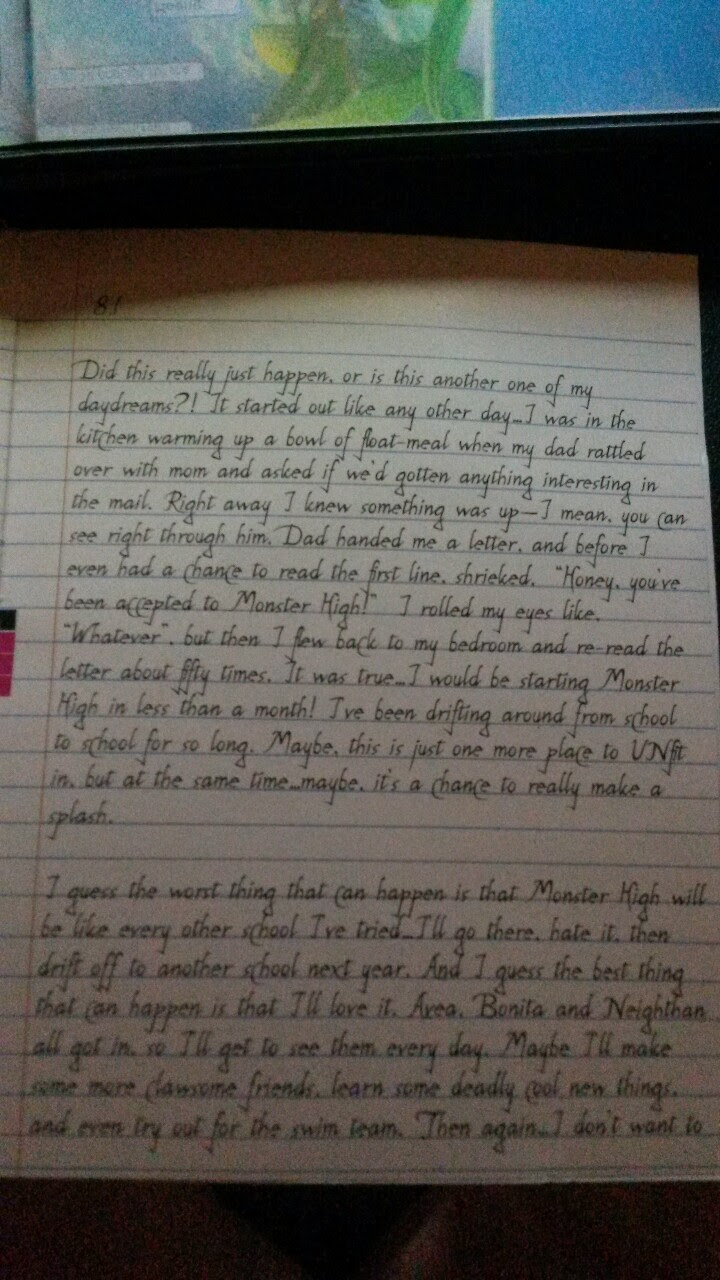 81
Did this really just happen, or is this another one of my
daydreams?! It started out like any other day...I was in the
kitchen warming up a bowl of float-meal when my dad rattled
over with mom and asked if we'd gotten anything interesting in
the mail. Right away I knew something was up—I mean, you can
see right through him. Dad handed me a letter, and before I
even had a chance to read the first line, shrieked, "Honey, you've
been accepted to Monster High!" I rolled my eyes like,
"Whatever", but then I flew back to my bedroom and re-read the
letter about fifty times. It was true...I would be starting Monster
High in less than a month! I've been drifting around from school
to school for so long. Maybe, this is just one more place to UNfit
in, but at the same time...maybe, it's a chance to really make a
splash.
I guess the worst thing that can happen is that Monster High will
be like every other school I've tried...I'll go there, hate it, then
drift off to another school next year. And I guess the best thing
that can happen is that I'll love it. Avea, Bonita and Neighthan
all got in, so I'll get to see them every day. Maybe I'll make
some more clawsome friends, learn some deadly cool new things,
and even try out for the swim team. Then again...I don't want to